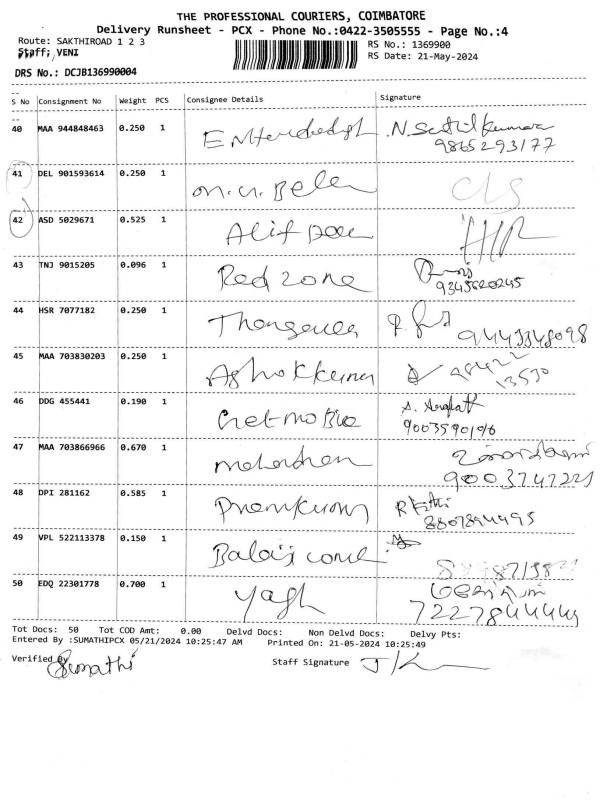 THE PROFESSIONAL COURIERS, COIMBATORE
Delivery Runsheet - PCX - Phone No.:0422-3505555 - Page No.:4
Route: SAKTHIROAD 1 2 3
RS No.: 1369900
Staff: VENI
RS Date: 21-May-2024
DRS No.: DCJB136990004
S No Consignment No Weight PCS Consignee Details Signature
40 MAA 944848463 0.250 1
9865293177
41 DEL 901593614 0.250 1 cls
42 ASD 5029671 0.525 1 Alif
43 TNJ 9015205 0.096 1 Red zone
9345620245
44 HSR 7077182 0.250 1
9443348098
45 MAA 703830203 0.250 1 Ashokkumar 98422
13530
46 DDG 455441 0.190 1
47 MAA 703866966 0.670 1
9003747221
48 DPI 281162 0.585 1 Premkumar
8807894495
49 VPL 522113378 0.150 1
50 EDQ 22301778 0.700 1 Yash
7227844449
Tot Docs: 50 Tot COD Amt: 0.00 Delvd Docs: Non Delvd Docs: Delvy Pts:
Entered By :SUMATHIPCX 05/21/2024 10:25:47 AM Printed On: 21-05-2024 10:25:49
Verified By Sumathi Staff Signature